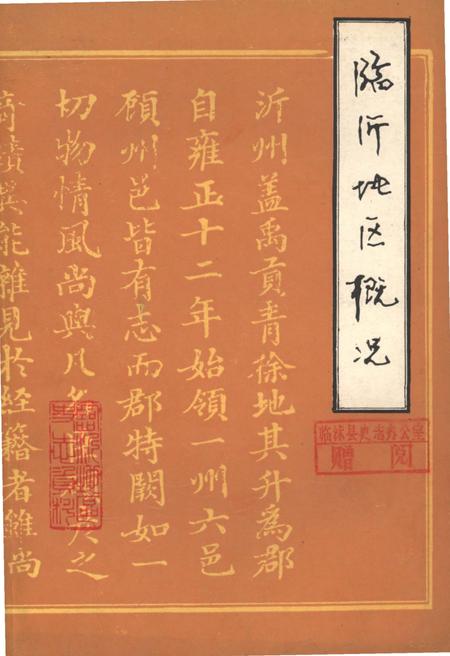 临沂地区概况
沂州盖禹贡青徐地其升為郡
自雍正十二年始領一州六邑
顧州邑皆有志而郡特闕如一
切物情風尚與凡
之
能雖見於经籍者雖尚
临沭县史志办公室
赠阅